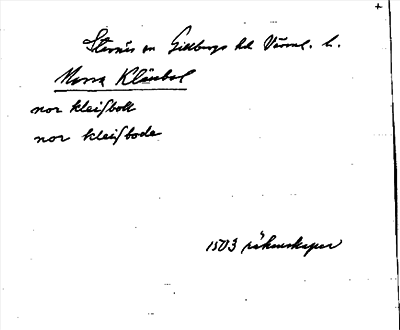 +
Stavnäs sn Gillbergs hd Värml. l.
Norra Kläsbol
nor kleisboll
nor kleisbode
1503 räkenskaper